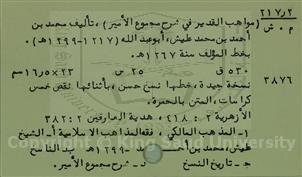 ٢١٧٫٢
م . ش
(مواهب القدير في شرح مجموع الأمير) ، تأليف محمد بن
أحمد بن محمد عليش، أبوعبد الله (١٢١٧-١٢٩٩هـ) .
بخط المؤلف سنة ١٢٦٧هـ .
٥٣٠ ق ٢٥ س ٢٣×١٦٫٥ سم
٣٨٧٦
نسخة جيدة ، خطها نسخ حسن ، بأثنائها نقص خمس
كراسات ، المتن بالحمرة .
الأزهرية ٢ : ٤١٨ ، هدية العارفين ٢ : ٣٨٢
١- المذهب المالكي ، فقه المذاهب الاسلامية أ- الشيخ
عليش، محمد بن أحمد - ١٢٩٩هـ ب- الناسخ
جـ - تاريخ النسخ د- شرح مجموع الأمير .